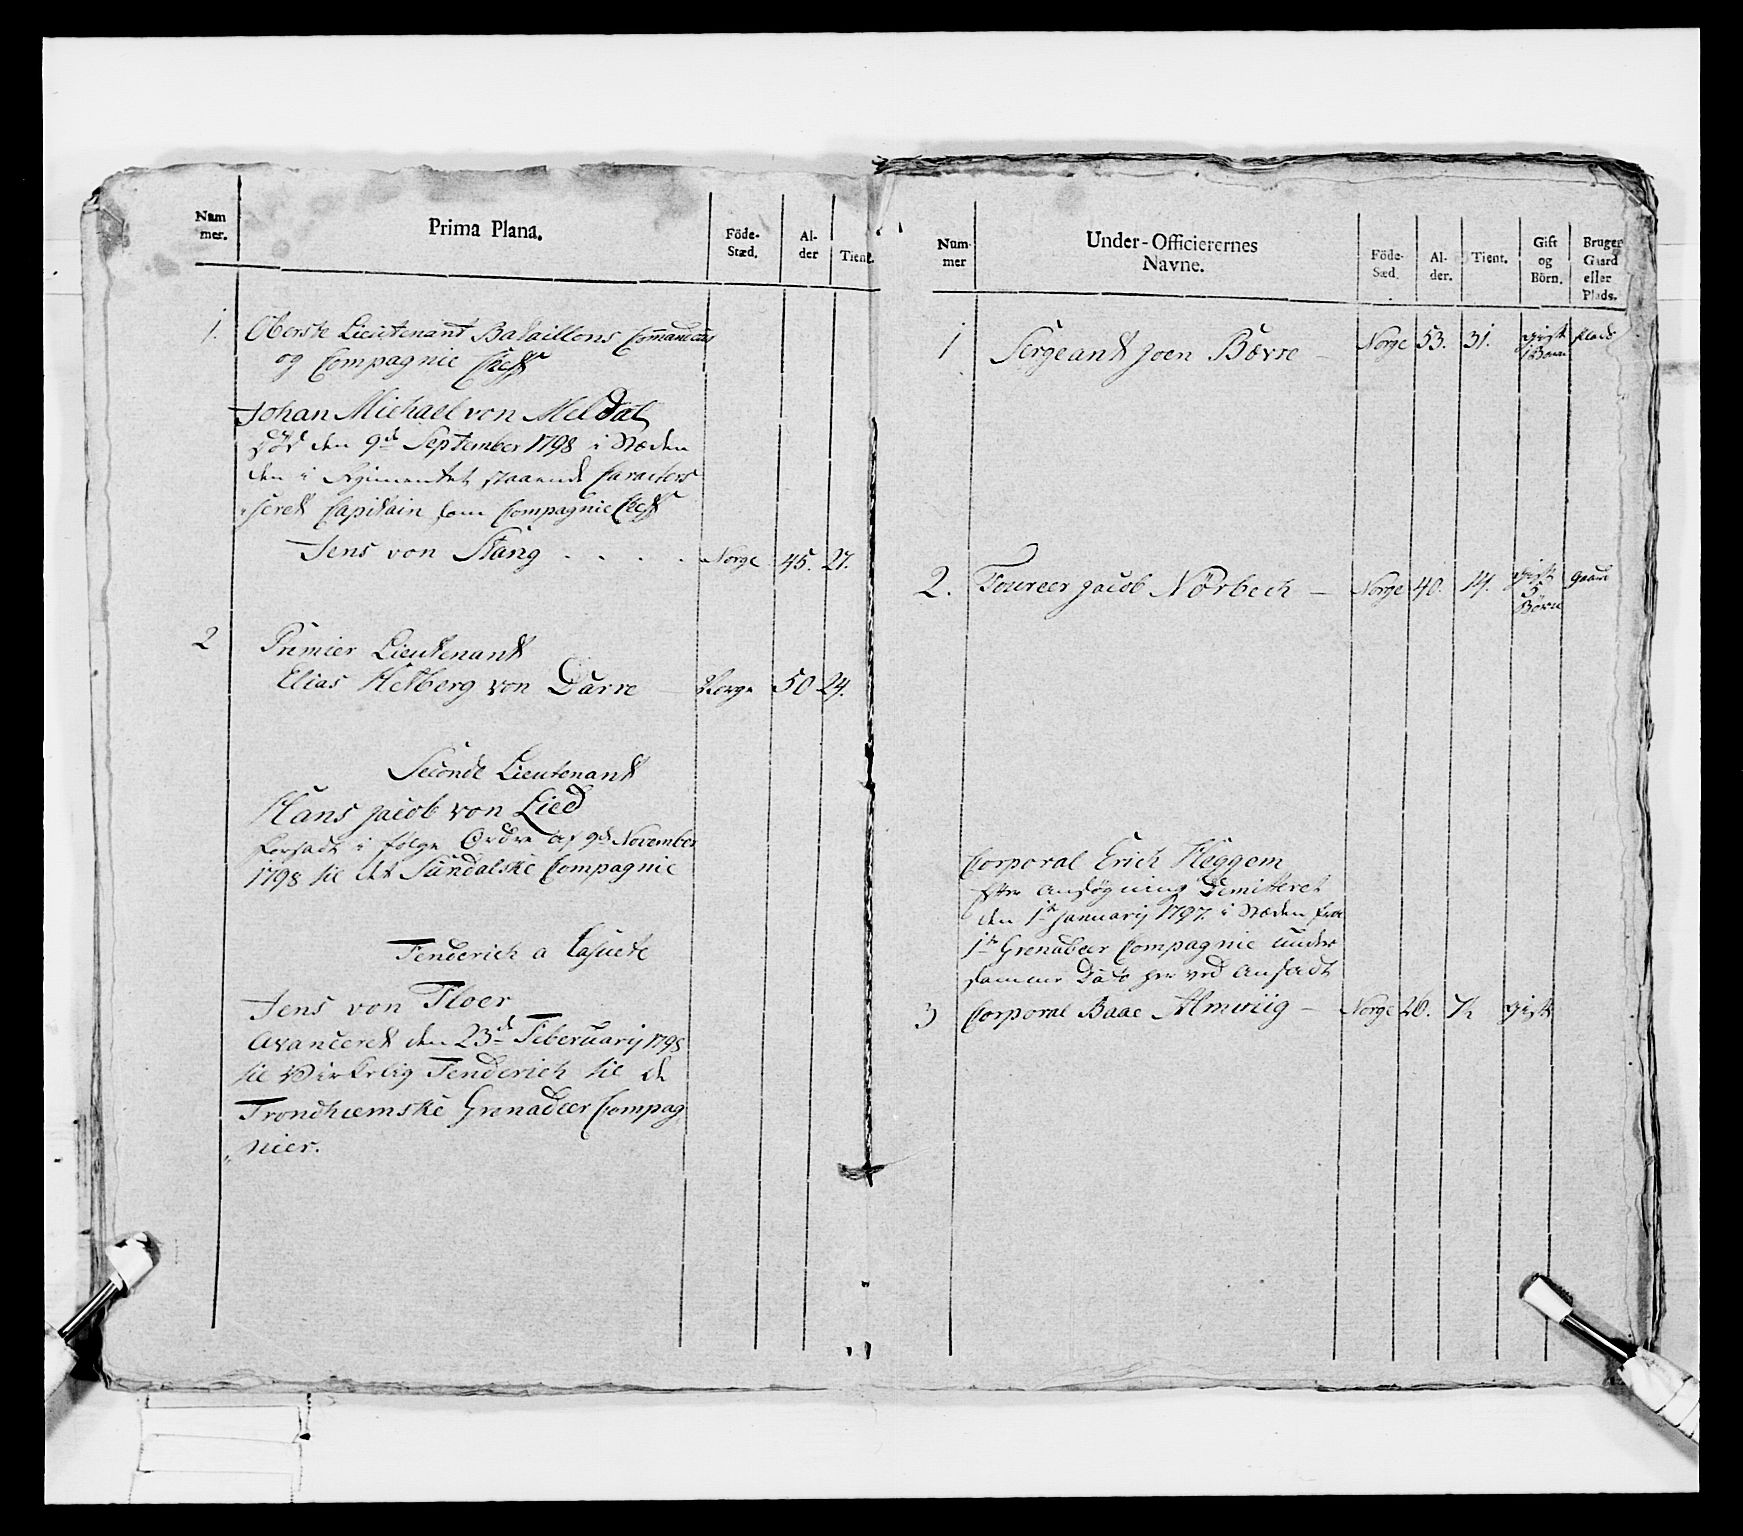 Num
mer.
Prima Plana.
Föde-
Stæd.
Al-
der
Tient.
1.
Oberste Lieutenant Bataillons Comandeur
og Compagnie Cheff
Johan Michael von Meldal
død den 9de September 1798 i Stæden
den i Regimentet staaende Caracteri
seret Capitain som Compagnie Cheff
Jens von Stang . . . . Norge 45. 27.
2
Premier Lieutenant
Elias Hetberg von Darre — Norge 50 24.
Seconde Lieutenant
Hans Jacob von Lied
forsadt i følge Ordre af 9de November
1798 til det Sundalske Compagnie
Fenderich a la suite
Jens von Floer
Avanceret den 23de Februarij 1798
til virkelig Fenderich til de
Trondhiemske Grenadeer Compag
nier.
Num-
mer
Under-Officierernes
Navne.
Föde-
Sæd.
Al-
der.
Tient.
Gift
og
Börn.
Bruger
Gaard
eller
Plads.
1
Sergeant Joen Bævre — Norge 53. 31. gift
1 Barn
plads
2.
Foureer Jacob Nørbech — Norge 40. 14. gift
5
Børn
gaard
Corporal Erich Heggem
efter Ansøgning Demitteret
den 1te Januarij 1797. i Stæden fra
1te Grenadeer Compagnie under
samme Dato her ved Ansadt
3
Corporal Baae Almviig — Norge 26. gift